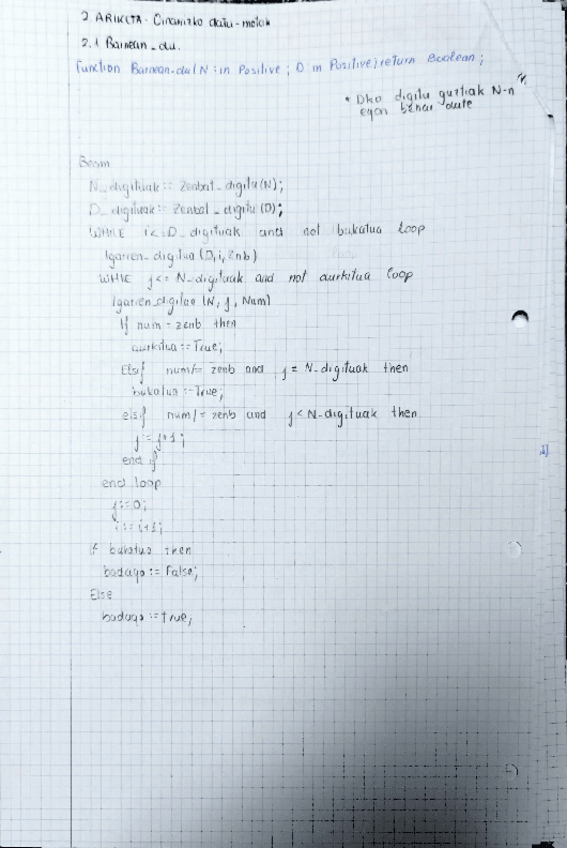 2 ARIKETA. Oinarrizko datu-motak
2.1 Barnean_du.
Function Barnean_du (N: in Positive; D in Positive) return Boolean;
* Dko digitu guztiak N-n
egon behar dute
Begin
N_digituak := Zenbat_digitu(N);
D_digituak := Zenbat_digitu (D);
WHILE i<=D_digituak and not bukatua loop
Igarren_digitua (D,i,Znb)
WHILE j<= N_digituak and not aurkitua loop
Igarren_digitua (N, j, Num)
If num = zenb then
aurkitua := True;
Elsif num/= zenb and j = N_digituak then
bukatua := True;
elsif num/= zenb and j< N_digituak then
j := j+1;
end if
end loop
j:=0;
i:= i+1;
if bukatua then
badago := False;
Else
badago := true;